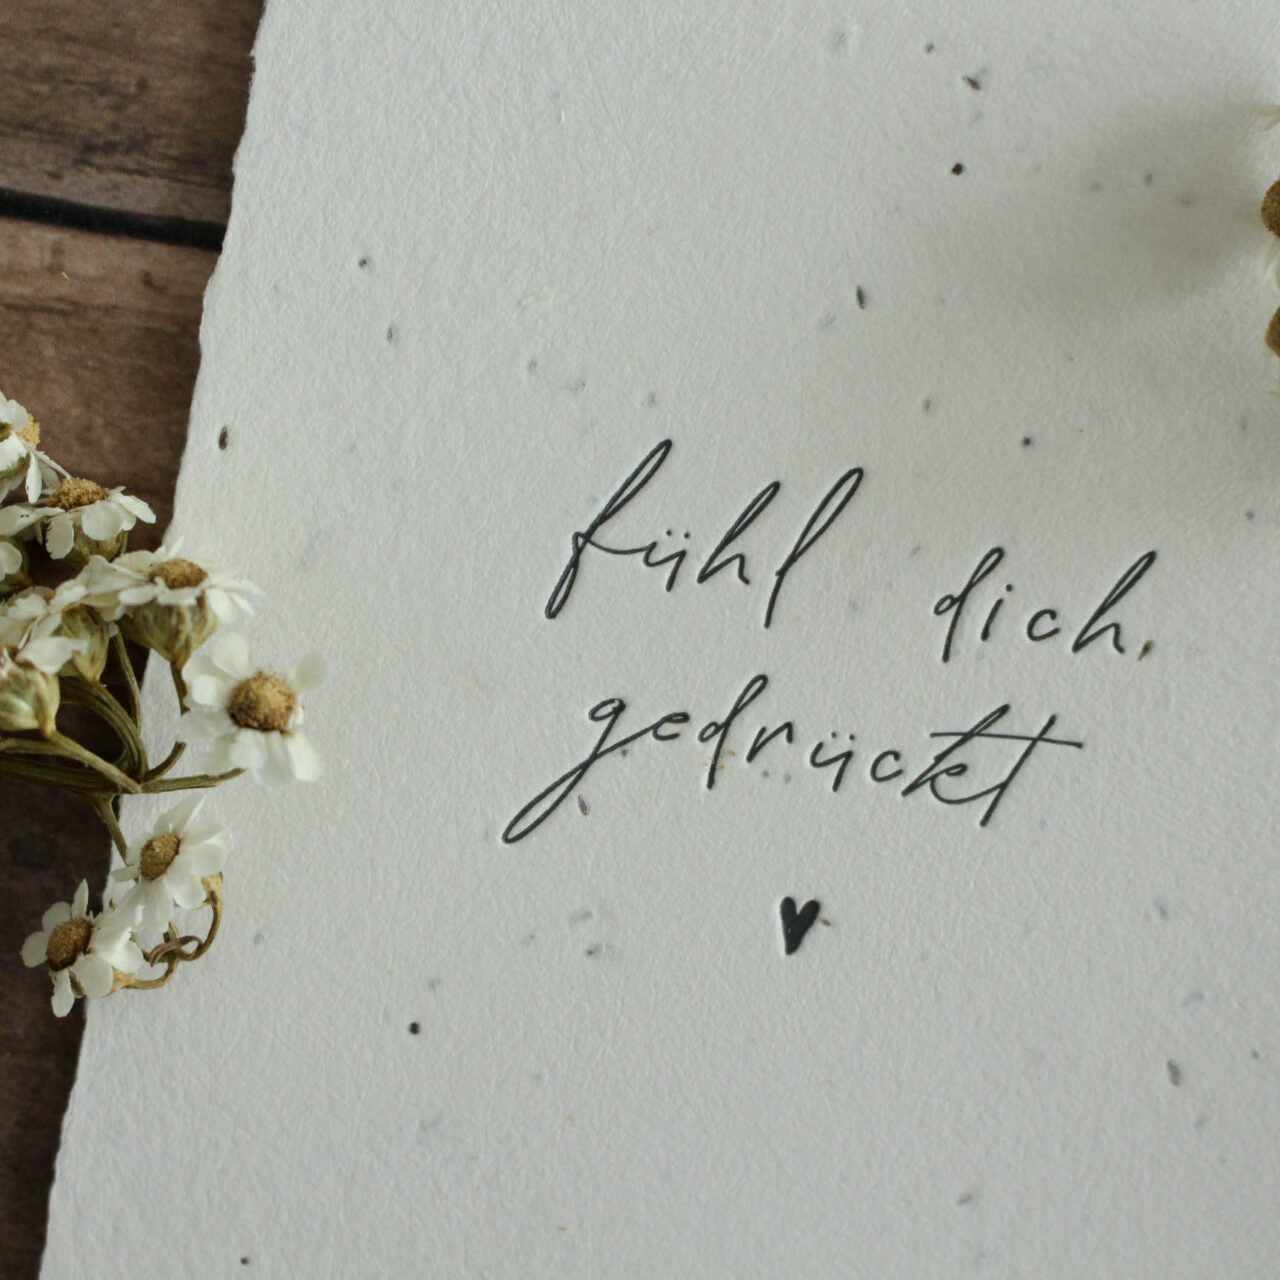 fühl dich
gedrückt